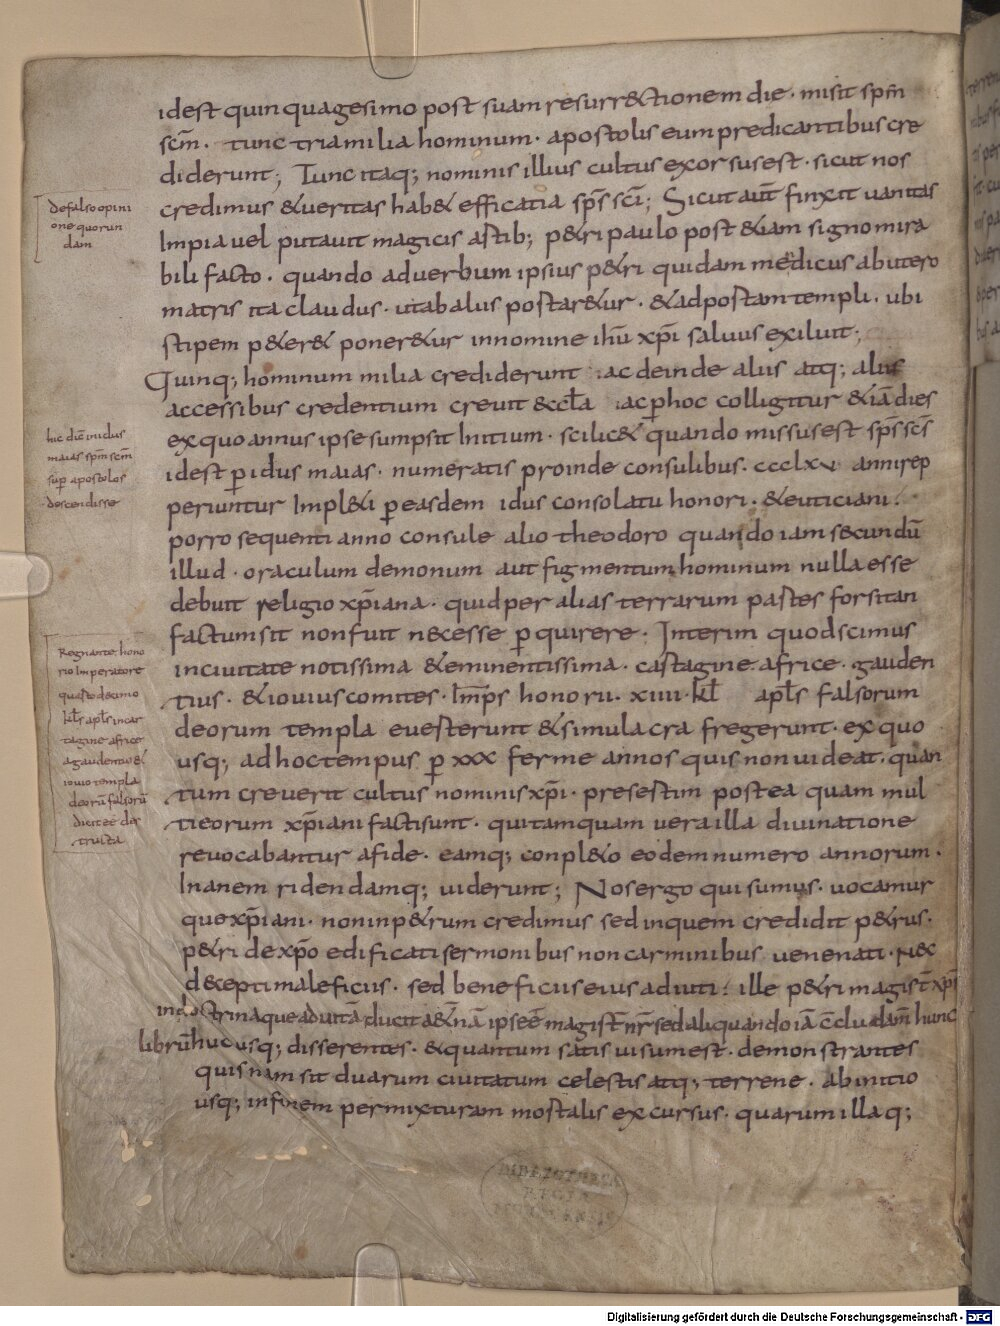 idest quinquagesimo post suam resurr&ctionem die. misit spm̄
scm̄. tunc tria milia hominum. apostolis eum predicantibus cre
diderunt; Tunc itaq; nominis illius cultus exorsus est. sicut nos
credimus &ueritas hab& efficatia sps̄ sci̅; Sicut aut̄ finxit uanitas
Impia uel putauit magicis astib; p&ri paulo post &iam signo mira
bili facto. quando aduerbum ipsius p&ri quidam medicus abutero
matris ita claudus. utabaliis portar&ur. &adportam templi. ubi
stipem p&er& poner&ur innomine ihu̅ xpi̅ saluus exiluit;
Quinq; hominum milia crediderunt. ac deinde aliis atq; aliis
accessibus credentium creuit &ccl̅a. ac p̱hoc colligitur &ia̅ dies
exquo annus ipse sumpsit Initium. scilic& quando missus est sps̄ scs̄
idest p̱ idus maias. numeratis proinde consulibus. ccclxv annirep
periuntur Impl&i p̱ easdem idus consolatu honori. &euticiani.
porro sequenti anno consule alio theodoro quando iam secundu̅
illud. oraculum demonum aut figmentum hominum nulla esse
debuit religio xp̅iana. quid per alias terrarum partes forsitan
factum sit non fuit necesse p̱quirere. Interim quod scimus
inciuitate notissima &eminentissima. cartagine africe. gauden
tius. &iouius comites. Imp̅s honorii. xiiii. kl̅ apl̅s falsorum
deorum templa euerterunt &simulacra fregerunt. ex quo
usq; ad hoc tempus p̱ xxx ferme annos quis non uideat. quan
tum creuerit cultus nominis xpi̅. presertim postea quam mul
ti eorum xp̅iani facti sunt. qui tamquam uera illa diuinatione
reuocabantur afide. eamq; conpl&o eodem numero annorum.
Inanem ridendamq; uiderunt; Nos ergo qui sumus. uocamur
que xp̅iani. non inp&rum credimus sed inquem credidit p&rus.
p&ri de xp̅o edificati sermonibus non carminibus uenenati. nec
decepti maleficiis. sed beneficiis eius adiuti. ille p&ri magist̅ xp̅s
indoctrina que aduita̅ ducit a&erna̅ ipse e̅ magist̅ nr̅ sed aliquando ia̅ c̅cludam̅ hunc
libru̅ huc usq; disserentes. &quantum satis uisum est. demonstrantes
quis nam sit duarum ciuitatum celestis atq; terrene. abinitio
usq; infinem permixturam mortalis excursus. quarum illa q;
defalso opini
one quorun
dam
hic die̅ in idus
maias spm̅ scm̅
sup̱ apostolos
descendisse
Regnante hono
rio Imperatore
quarto decimo
kl̅s apl̅s incar
tagine africe
agaudentio &
iouio templa
deoru̅ falsoru̅
dicit ee̅ des
tructa
BIBLIOTHECA
REGIA
MONACENSIS
Digitalisierung gefördert durch die Deutsche Forschungsgemeinschaft - DFG